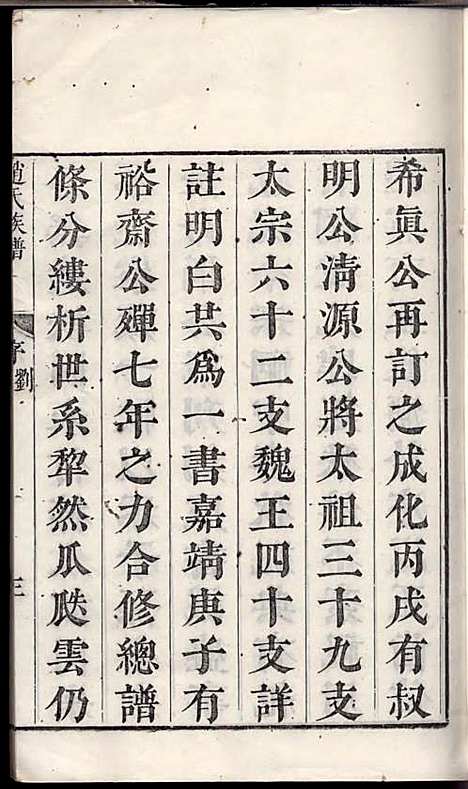 希眞公再訂之成化丙戌有叔
明公清源公將太祖三十九支
太宗六十二支魏王四十支詳
註明白共爲一書嘉靖庚子有
裕齋公殫七年之力合修總譜
條分縷析世系犂然瓜瓞雲仍
趙氏族譜 序劉 三